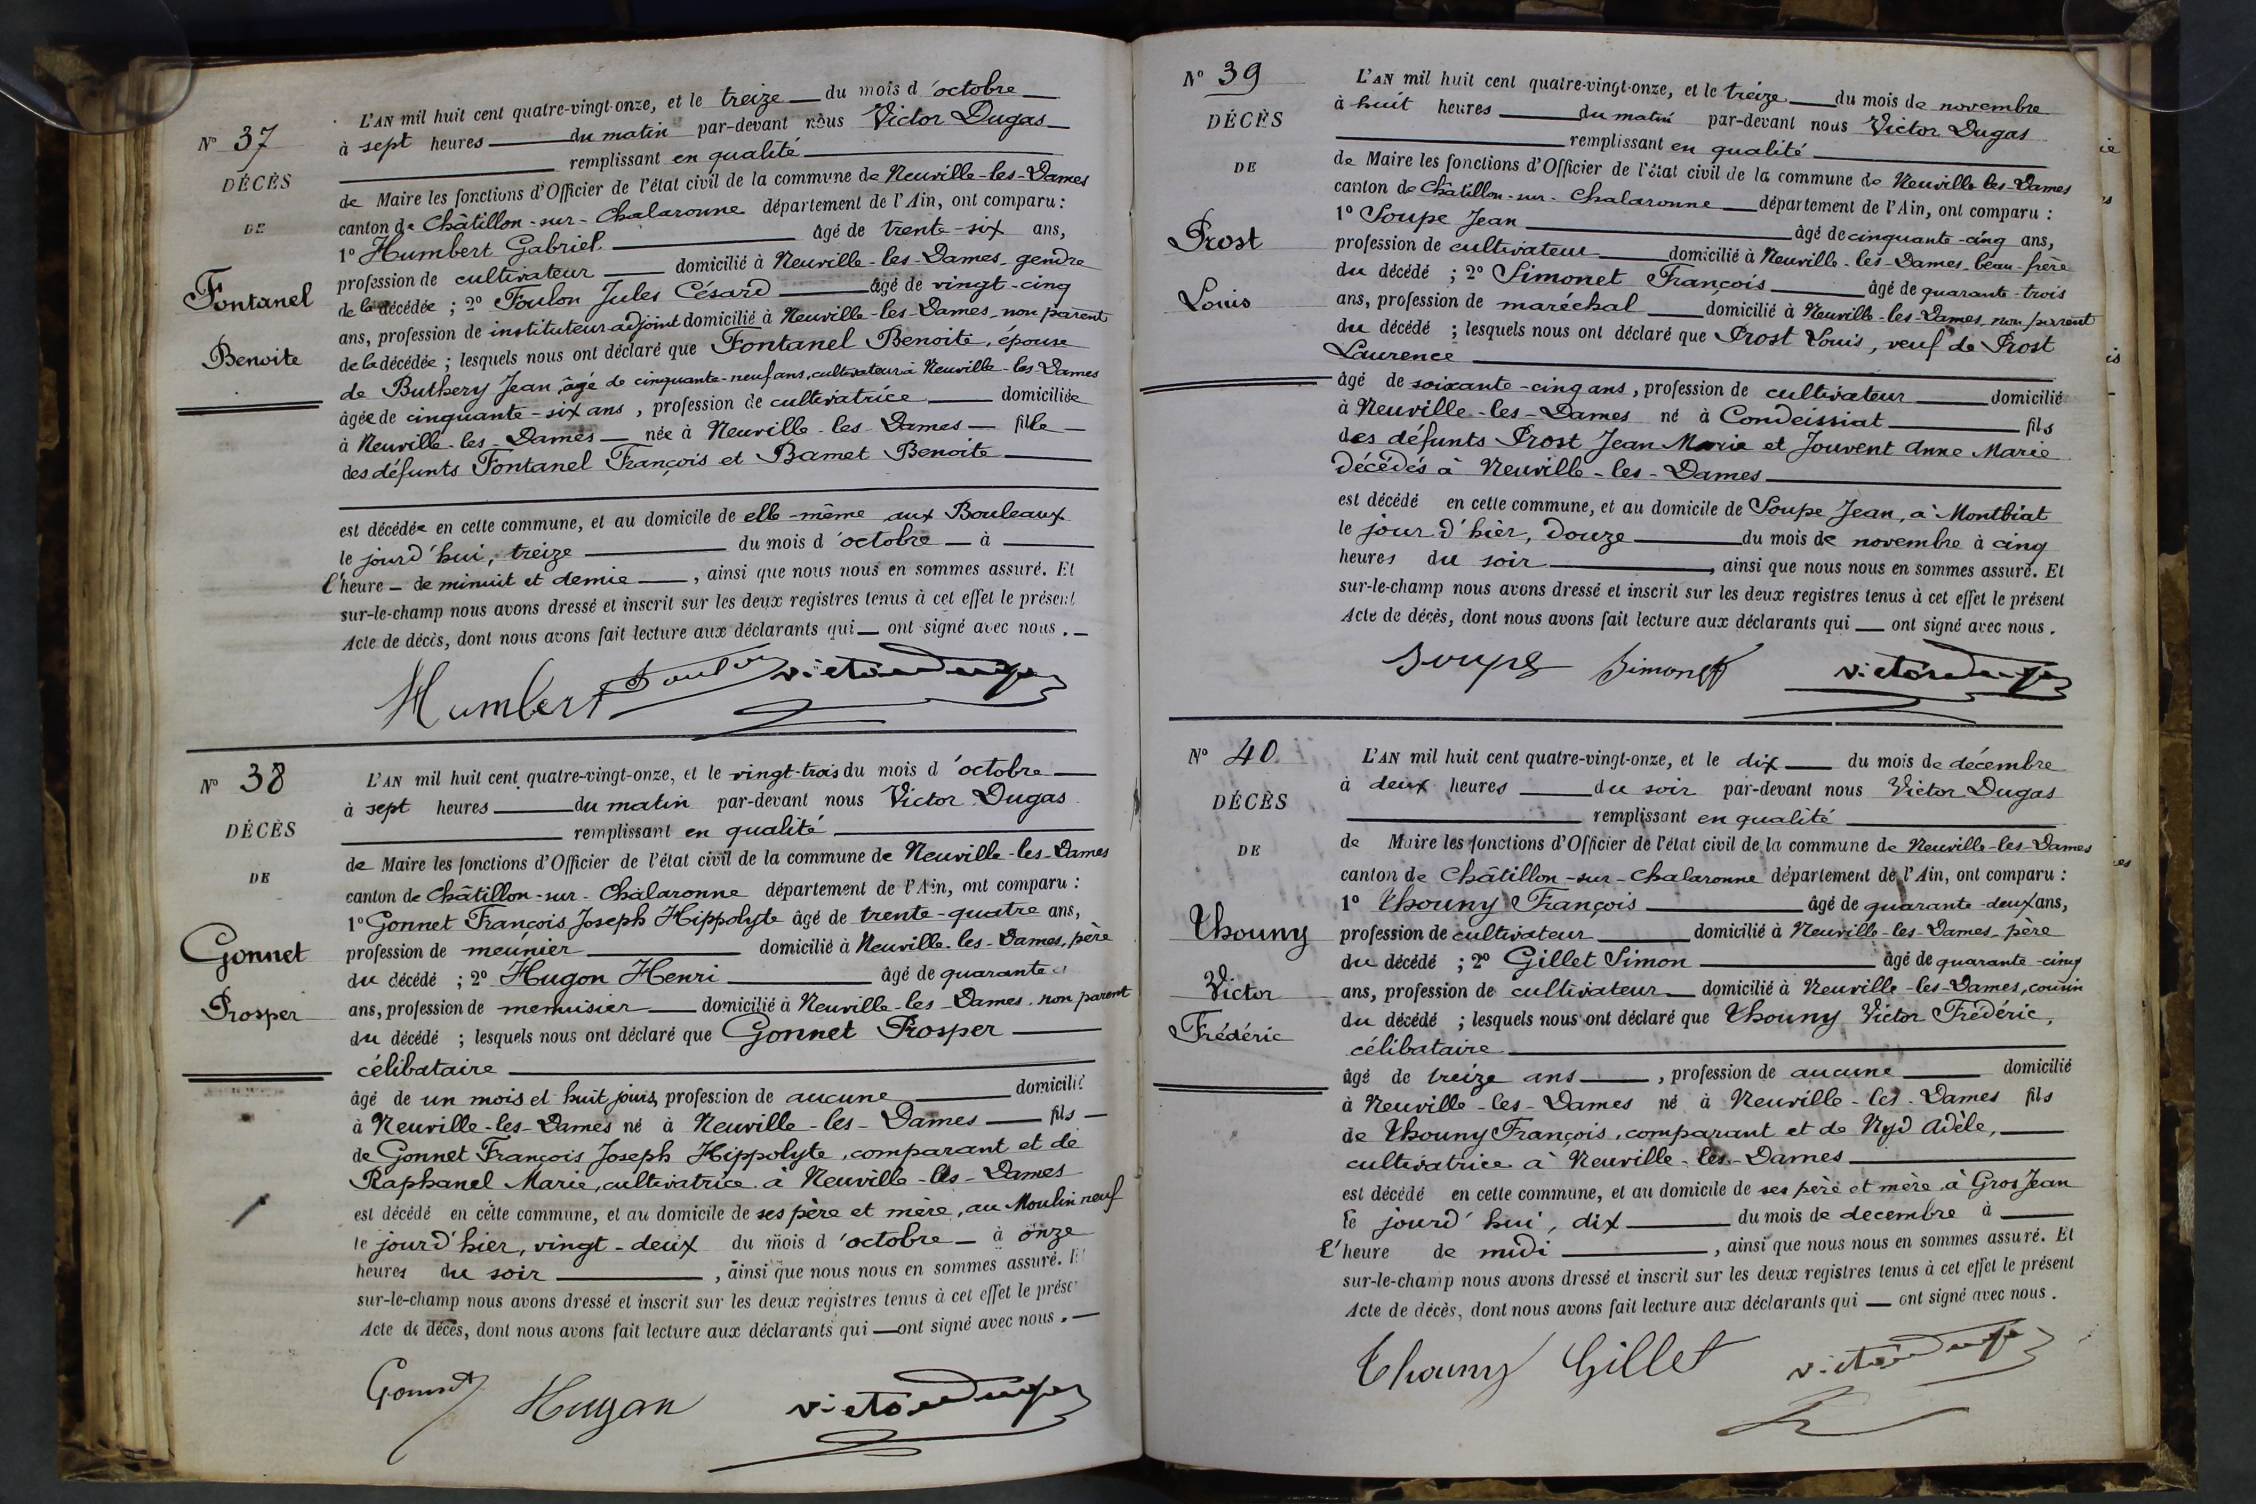 N° 37
DÉCÈS
DE
Fontanel
Benoite
L'AN mil huit cent quatre-vingt-onze, et le treize du mois d'octobre
à sept heures du matin par-devant nous Victor Dugas
remplissant en qualité
de Maire les fonctions d'Officier de l'état civil de la commune de Neuville-les-Dames
canton de Châtillon-sur-Chalaronne département de l'Ain, ont comparu :
1° Humbert Gabriel âgé de trente-six ans,
profession de cultivateur domicilié à Neuville-les-Dames, gendre
de la décédée ; 2° Foulon Jules César âgé de vingt-cinq
ans, profession de instituteur-adjoint domicilié à Neuville-les-Dames, non parent
de la décédée ; lesquels nous ont déclaré que Fontanel Benoite, épouse
de Buthery Jean, âgé de cinquante-neuf ans, cultivateur à Neuville-les-Dames
âgée de cinquante-six ans, profession de cultivatrice domiciliée
à Neuville-les-Dames née à Neuville-les-Dames fille
des défunts Fontanel François et Bamet Benoite
est décédée en cette commune, et au domicile de elle-même aux Bouleaux
le jourd'hui, treize du mois d'octobre à
l'heure de minuit et demie, ainsi que nous nous en sommes assuré. Et
sur-le-champ nous avons dressé et inscrit sur les deux registres tenus à cet effet le présent
Acte de décès, dont nous avons fait lecture aux déclarants qui ont signé avec nous.
Humbert Foulon Victor Dugas
N° 38
DÉCÈS
DE
Gonnet
Prosper
L'AN mil huit cent quatre-vingt-onze, et le vingt-trois du mois d'octobre
à sept heures du matin par-devant nous Victor Dugas
remplissant en qualité
de Maire les fonctions d'Officier de l'état civil de la commune de Neuville-les-Dames
canton de Châtillon-sur-Chalaronne département de l'Ain, ont comparu :
1° Gonnet François Joseph Hippolyte âgé de trente-quatre ans,
profession de meunier domicilié à Neuville-les-Dames, père
du décédé ; 2° Hugon Henri âgé de quarante
ans, profession de menuisier domicilié à Neuville-les-Dames, non parent
du décédé ; lesquels nous ont déclaré que Gonnet Prosper
célibataire
âgé de un mois et huit jours, profession de aucune domicilié
à Neuville-les-Dames né à Neuville-les-Dames fils
de Gonnet François Joseph Hippolyte, comparant et de
Raphanel Marie, cultivatrice à Neuville-les-Dames
est décédé en cette commune, et au domicile de ses père et mère, au Moulin neuf
le jourd'hier, vingt-deux du mois d'octobre à onze
heures du soir, ainsi que nous nous en sommes assuré. Et
sur-le-champ nous avons dressé et inscrit sur les deux registres tenus à cet effet le prése
Acte de décès, dont nous avons fait lecture aux déclarants qui ont signé avec nous.
Gonnet Hugon Victor Dugas
N° 39
DÉCÈS
DE
Prost
Louis
L'AN mil huit cent quatre-vingt-onze, et le treize du mois de novembre
à huit heures du matin par-devant nous Victor Dugas
remplissant en qualité
de Maire les fonctions d'Officier de l'état civil de la commune de Neuville-les-Dames
canton de Châtillon-sur-Chalaronne département de l'Ain, ont comparu :
1° Soupe Jean âgé de cinquante-cinq ans,
profession de cultivateur domicilié à Neuville-les-Dames, beau-frère
du décédé ; 2° Simonet François âgé de quarante-trois
ans, profession de maréchal domicilié à Neuville-les-Dames, non parent
du décédé ; lesquels nous ont déclaré que Prost Louis, veuf de Prost
Laurence
âgé de soixante-cinq ans, profession de cultivateur domicilié
à Neuville-les-Dames né à Condeissiat fils
des défunts Prost Jean Marie et Jouvent Anne Marie
décédés à Neuville-les-Dames
est décédé en cette commune, et au domicile de Soupe Jean, à Montbiat
le jour d'hier, douze du mois de novembre à cinq
heures du soir, ainsi que nous nous en sommes assuré. Et
sur-le-champ nous avons dressé et inscrit sur les deux registres tenus à cet effet le présent
Acte de décès, dont nous avons fait lecture aux déclarants qui ont signé avec nous.
Soupe Simonet Victor Dugas
N° 40
DÉCÈS
DE
Thouny
Victor
Frédéric
L'AN mil huit cent quatre-vingt-onze, et le dix du mois de décembre
à deux heures du soir par-devant nous Victor Dugas
remplissant en qualité
de Maire les fonctions d'Officier de l'état civil de la commune de Neuville-les-Dames
canton de Châtillon-sur-Chalaronne département de l'Ain, ont comparu :
1° Thouny François âgé de quarante-deux ans,
profession de cultivateur domicilié à Neuville-les-Dames, père
du décédé ; 2° Gillet Simon âgé de quarante-cinq
ans, profession de cultivateur domicilié à Neuville-les-Dames, cousin
du décédé ; lesquels nous ont déclaré que Thouny Victor Frédéric,
célibataire
âgé de treize ans, profession de aucune domicilié
à Neuville-les-Dames né à Neuville-les-Dames fils
de Thouny François, comparant et de Nyd Adèle,
cultivatrice à Neuville-les-Dames
est décédé en cette commune, et au domicile de ses père et mère à Gros Jean
le jourd'hui, dix du mois de decembre à
l'heure de midi, ainsi que nous nous en sommes assuré. Et
sur-le-champ nous avons dressé et inscrit sur les deux registres tenus à cet effet le présent
Acte de décès, dont nous avons fait lecture aux déclarants qui ont signé avec nous.
Thouny Gillet Victor Dugas